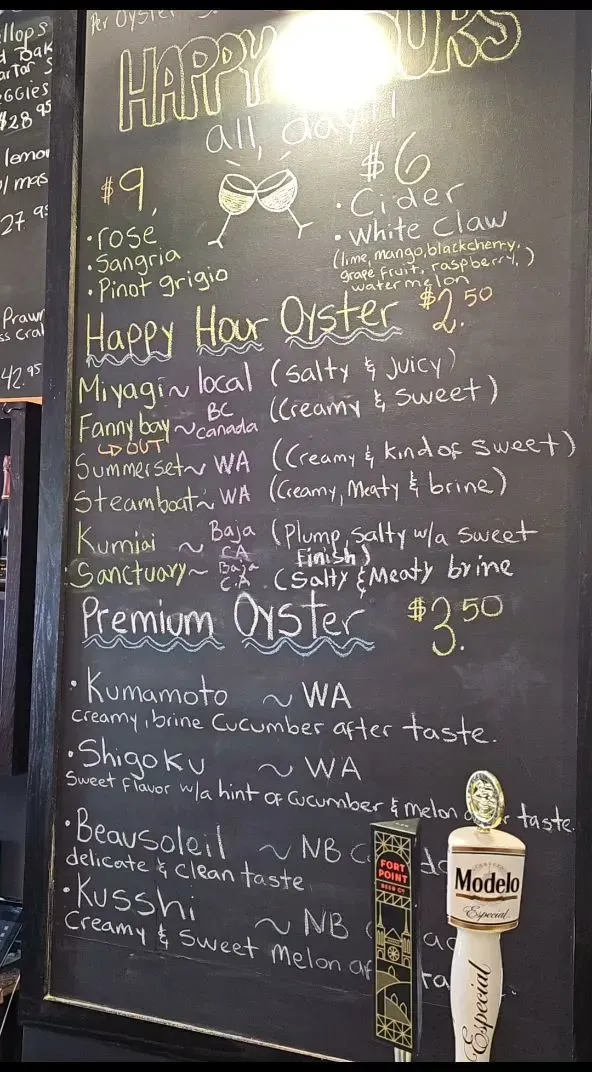 llops
d Bak
artar S
eggies
$28 95
lemon
w/ mas
27. 95
Prawn
ss Crab
42.95
Per Oyster
HAPPY OURS
all, day!!
$9.
• rose
• Sangria
• Pinot grigio
$6
• Cider
• White Claw
(lime, mango, blackcherry,
grape fruit, raspberry,)
watermelon
Happy Hour Oyster $2.50
Miyagi ~ local (Salty & Juicy)
Fanny bay ~ BC Canada (Creamy & Sweet)
↳ OUT
Summerset ~ WA (Creamy & kind of sweet)
Steamboat ~ WA (Creamy, Meaty & brine)
Kumiai ~ Baja CA (Plump, Salty w/a sweet
Finish)
• Sanctuary ~ Baja C.A (Salty & Meaty brine
Premium Oyster $3.50
• Kumamoto ~ WA
Creamy, brine Cucumber after taste.
• Shigoku ~ WA
Sweet Flavor w/a hint of Cucumber & melon taste.
• Beausoleil ~ NB C
delicate & Clean taste
• Kusshi ~ NB
Creamy & Sweet Melon af
FORT
POINT
BEER CO
Modelo
Especial
Especial